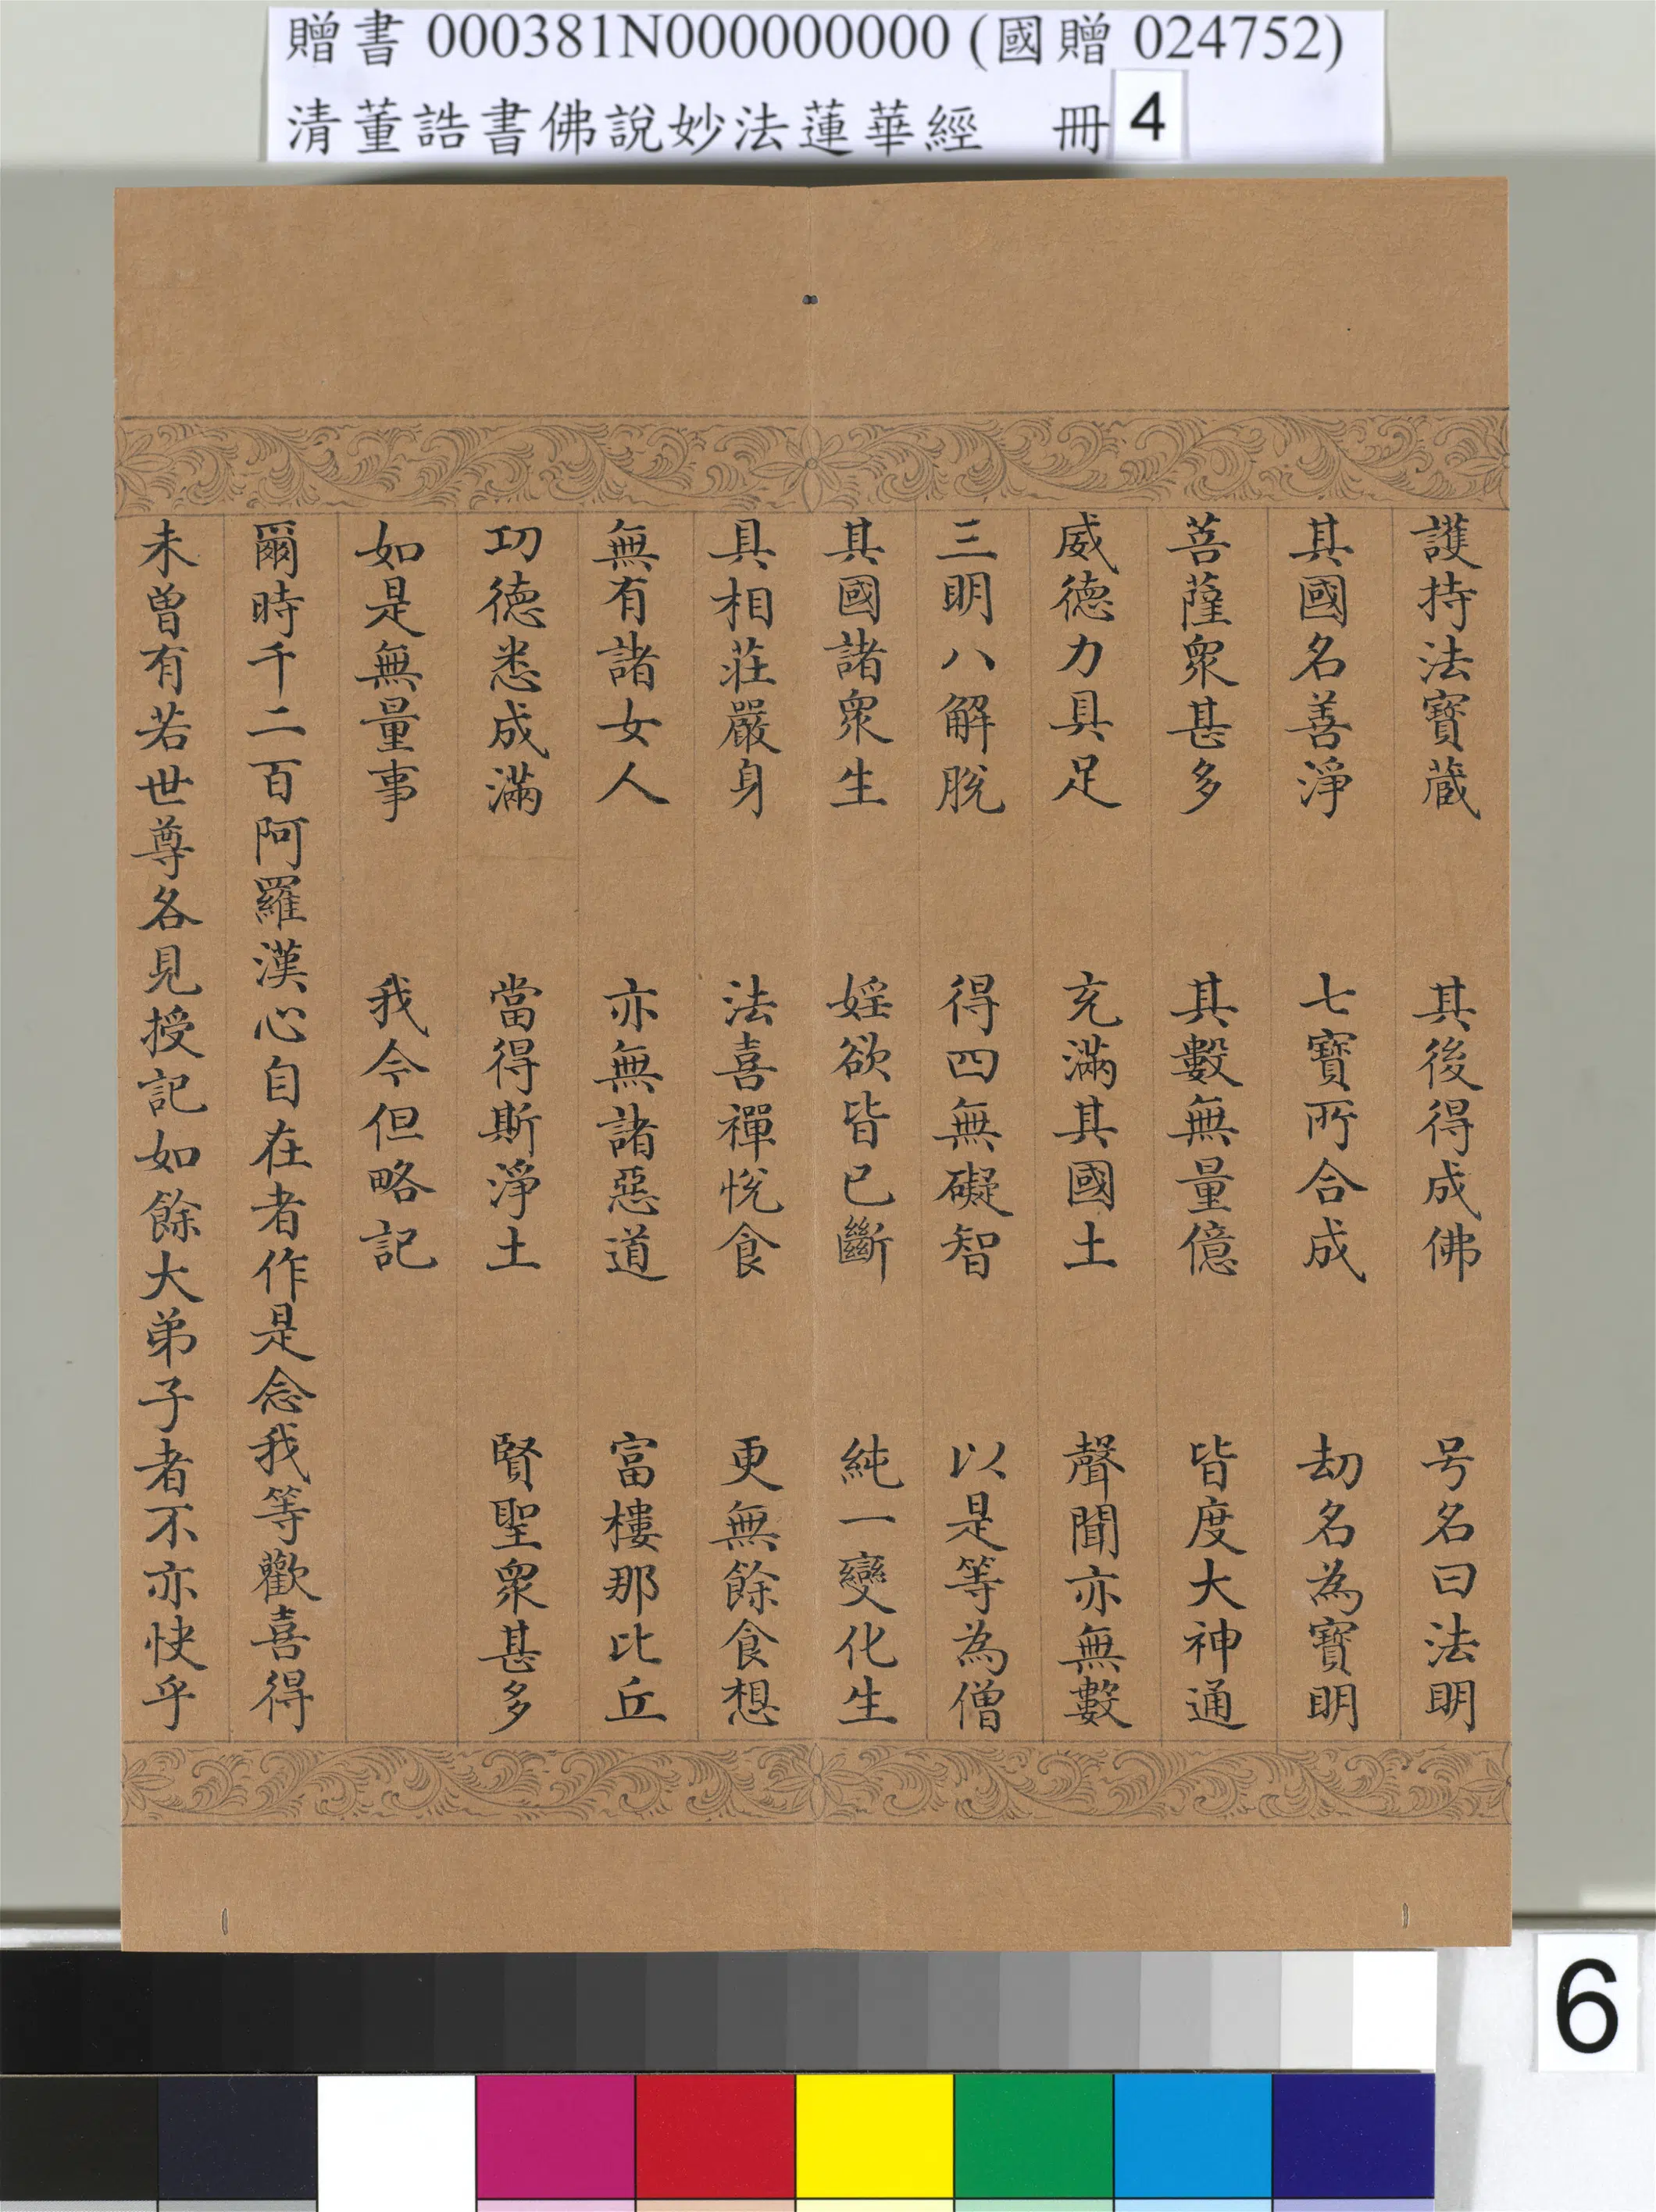 贈書 000381N000000000 (國贈 024752)
清董誥書佛說妙法蓮華經 冊 4
護持法寶蔵 其後得成佛 号名曰法明
其國名善淨 七寶所合成 劫名為寶明
菩薩衆甚多 其數無量億 皆度大神通
威德力具足 充滿其國土 聲聞亦無數
三明八解脫 得四無礙智 以是等為僧
其國諸衆生 婬欲皆已斷 純一變化生
具相莊嚴身 法喜禪悅食 更無餘食想
無有諸女人 亦無諸惡道 富樓那比丘
功德悉成滿 當得斯淨土 賢聖衆甚多
如是無量事 我今但略記
爾時千二百阿羅漢心自在者作是念我等歡喜得
未曾有若世尊各見授記如餘大弟子者不亦快乎
6